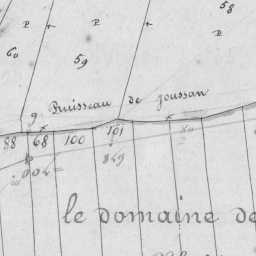 58
P P
60 59
Ruisseau de Joussan
88 68 100 101
849
le Domaine de